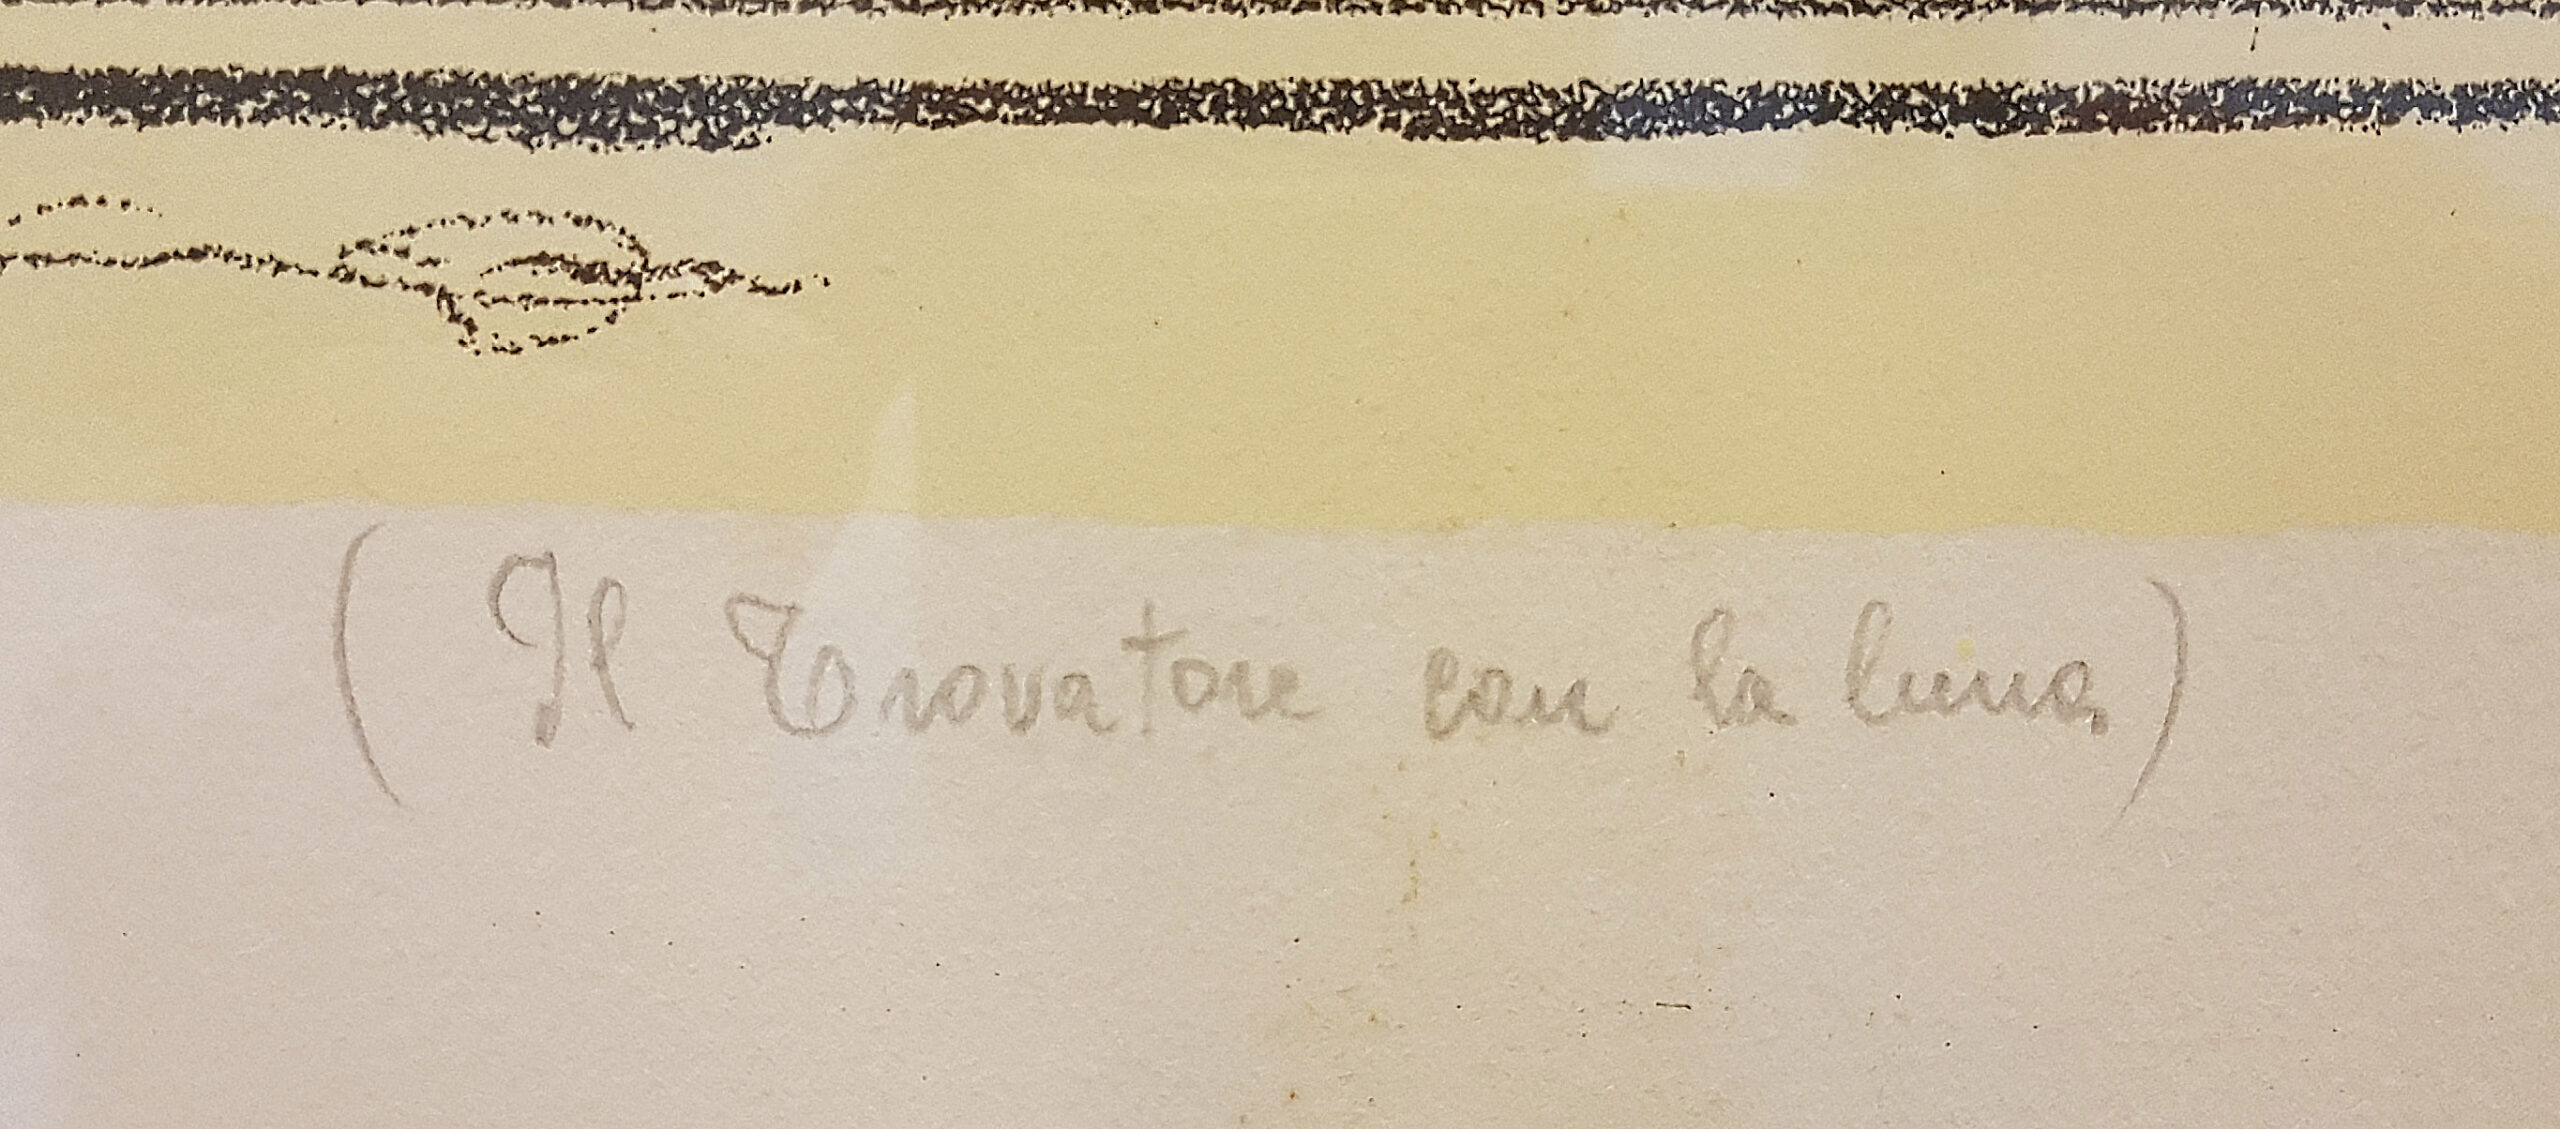 (Il Trovatore con la luna)